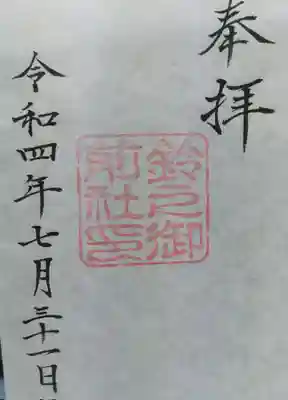 奉拝
鈴之御前社印
令和四年七月三十一日